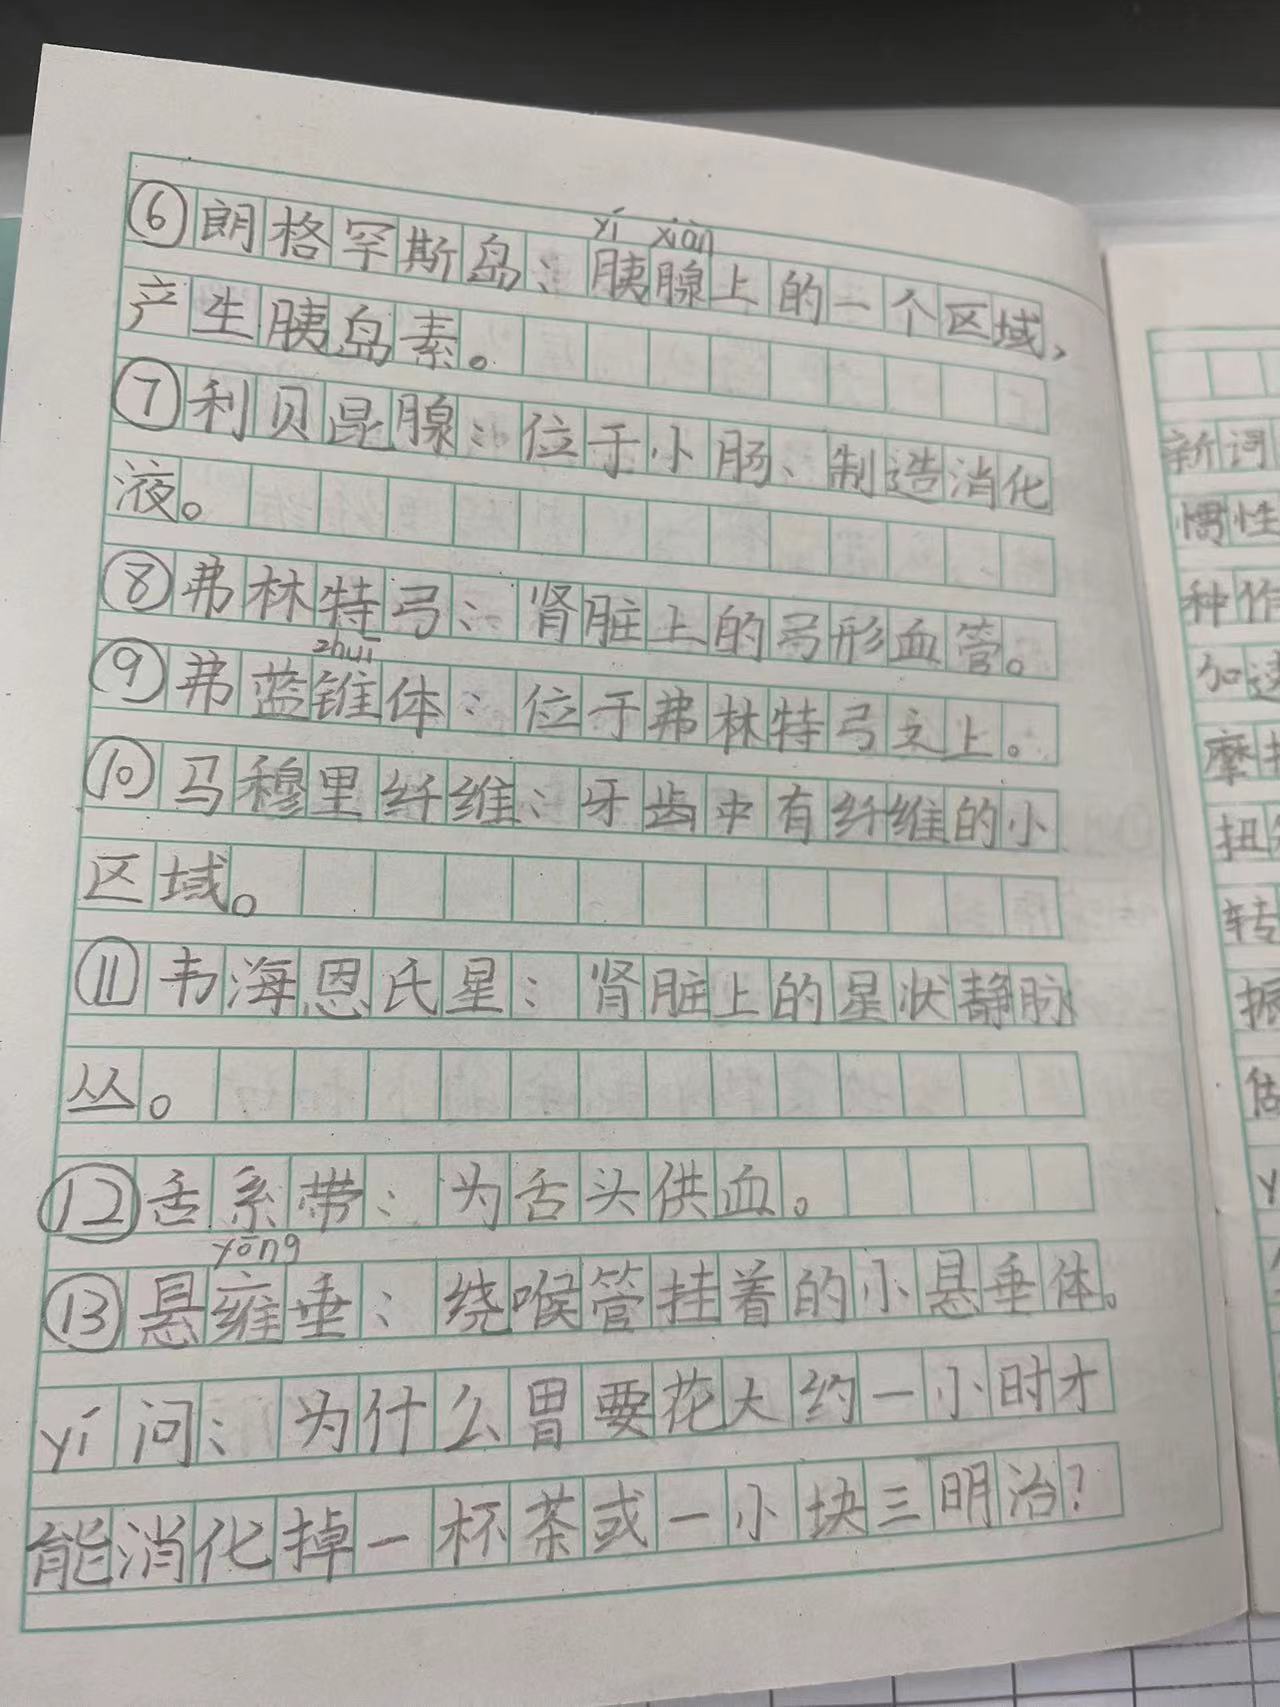 yí xiàn
⑥朗格罕斯岛：胰腺上的一个区域，
产生胰岛素。
⑦利贝昆腺：位于小肠、制造消化
液。
⑧弗林特弓：肾脏上的弓形血管。
zhuī
⑨弗蓝锥体：位于弗林特弓之上。
⑩马穆里纤维：牙齿中有纤维的小
区域。
⑪韦海恩氏星：肾脏上的星状静脉
丛。
⑫舌系带：为舌头供血。
yōng
⑬悬雍垂：绕喉管挂着的小悬垂体。
yí问：为什么胃要花大约一小时才
能消化掉一杯茶或一小块三明治？
新词
惯性
种作
加速
摩
扭
转
振
估